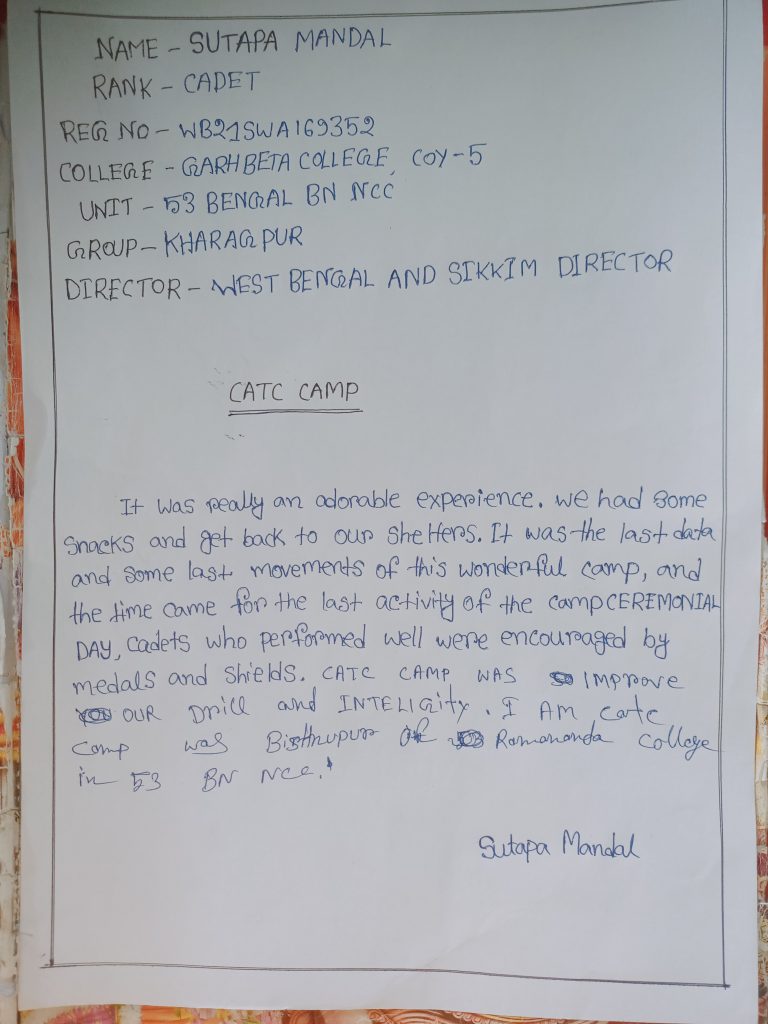 NAME - SUTAPA MANDAL
RANK - CADET
REG NO - WB21SWA169352
COLLEGE - GARHBETA COLLEGE, COY-5
UNIT - 53 BENGAL BN NCC
GROUP - KHARAGPUR
DIRECTOR - WEST BENGAL AND SIKKIM DIRECTOR
CATC CAMP
It was really an adorable experience. we had some
snacks and get back to our shelters. It was the last data
and some last movements of this wonderful camp, and
the time came for the last activity of the camp CEREMONIAL
DAY, cadets who performed well were encouraged by
medals and shields. CATC CAMP WAS IMPROVE
OUR Drill and INTELIGITY. I AM catc
camp was Bisthnupur of Ramananda college
in 53 BN NCC.
Sutapa Mandal